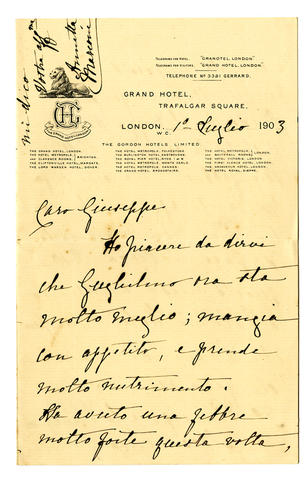 mi dico
Vostra aff
Annie
Marconi
TELEGRAMS FOR HOTEL, "GRANOTEL, LONDON"
TELEGRAMS FOR VISITORS, "GRAND HOTEL, LONDON."
TELEPHONE Nº 3381 GERRARD.
GRAND HOTEL,
TRAFALGAR SQUARE,
LONDON, 1º Luglio 1903
W.C.
THE GORDON HOTELS LIMITED
THE GRAND HOTEL, LONDON.
THE HOTEL METROPOLE, BRIGHTON
THE CLIFTONVILLE HOTEL, MARGATE.
THE LORD WARDEN HOTEL, DOVER.
THE HOTEL METROPOLE, FOLKESTONE
THE BURLINGTON HOTEL, EASTBOURNE
THE ROYAL PIER HOTEL, RYDE I of W
THE HOTEL METROPOLE, MONTE CARLO
THE HOTEL METROPOLE, CANNES
THE GRAND HOTEL, BROADSTAIRS.
THE HOTEL METROPOLE, LONDON.
THE HOTEL VICTORIA, LONDON
THE GROSVENOR HOTEL, LONDON
THE HOTEL ROYAL, DIEPPE.
Caro Giuseppe
Ho piacere da dirvi
che Guglielmo ora sta
molto meglio; mangia
con appetito, e prende
molto nutrimento.
Ha avuto una febbre
molto forte questa volta,